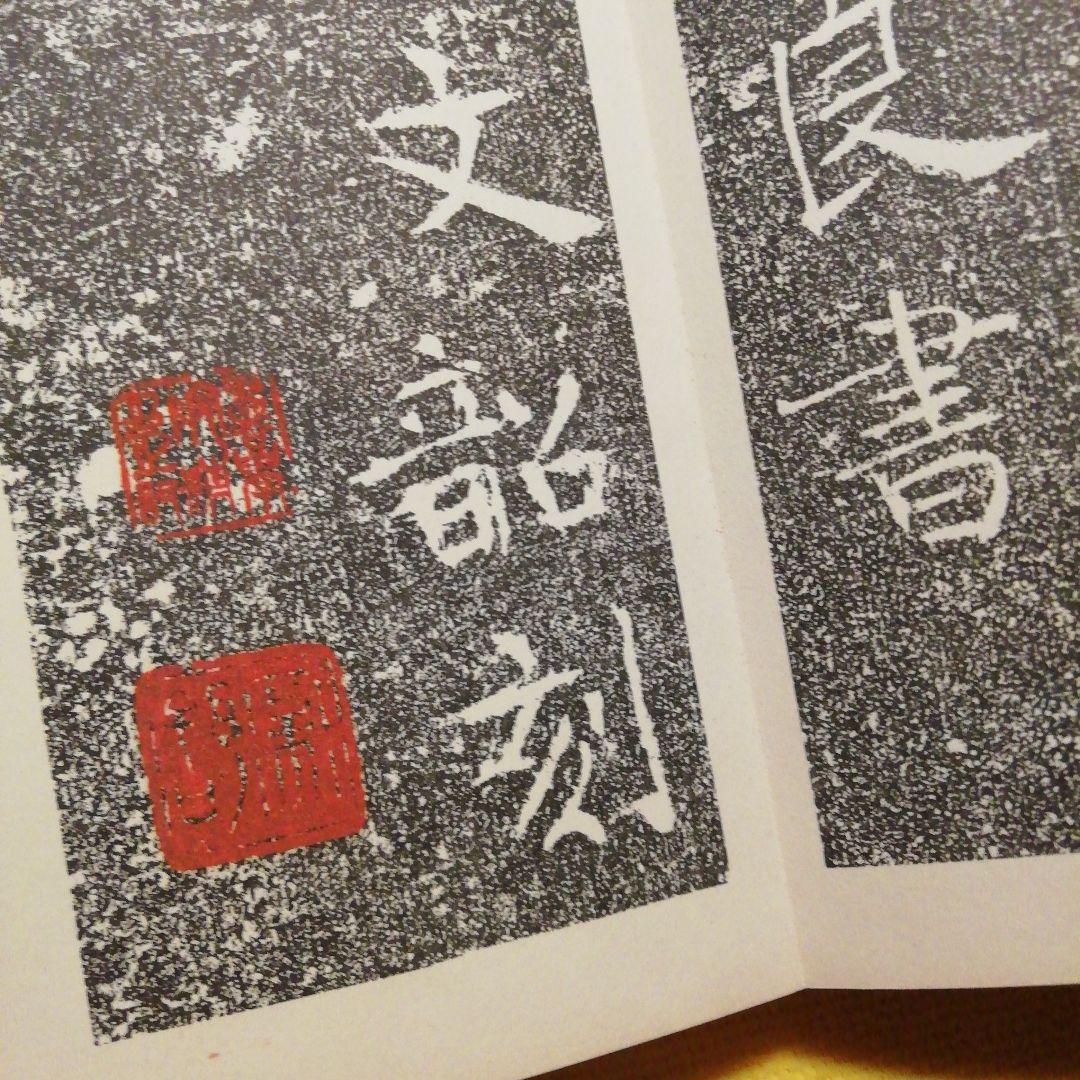 良書
文韶刻